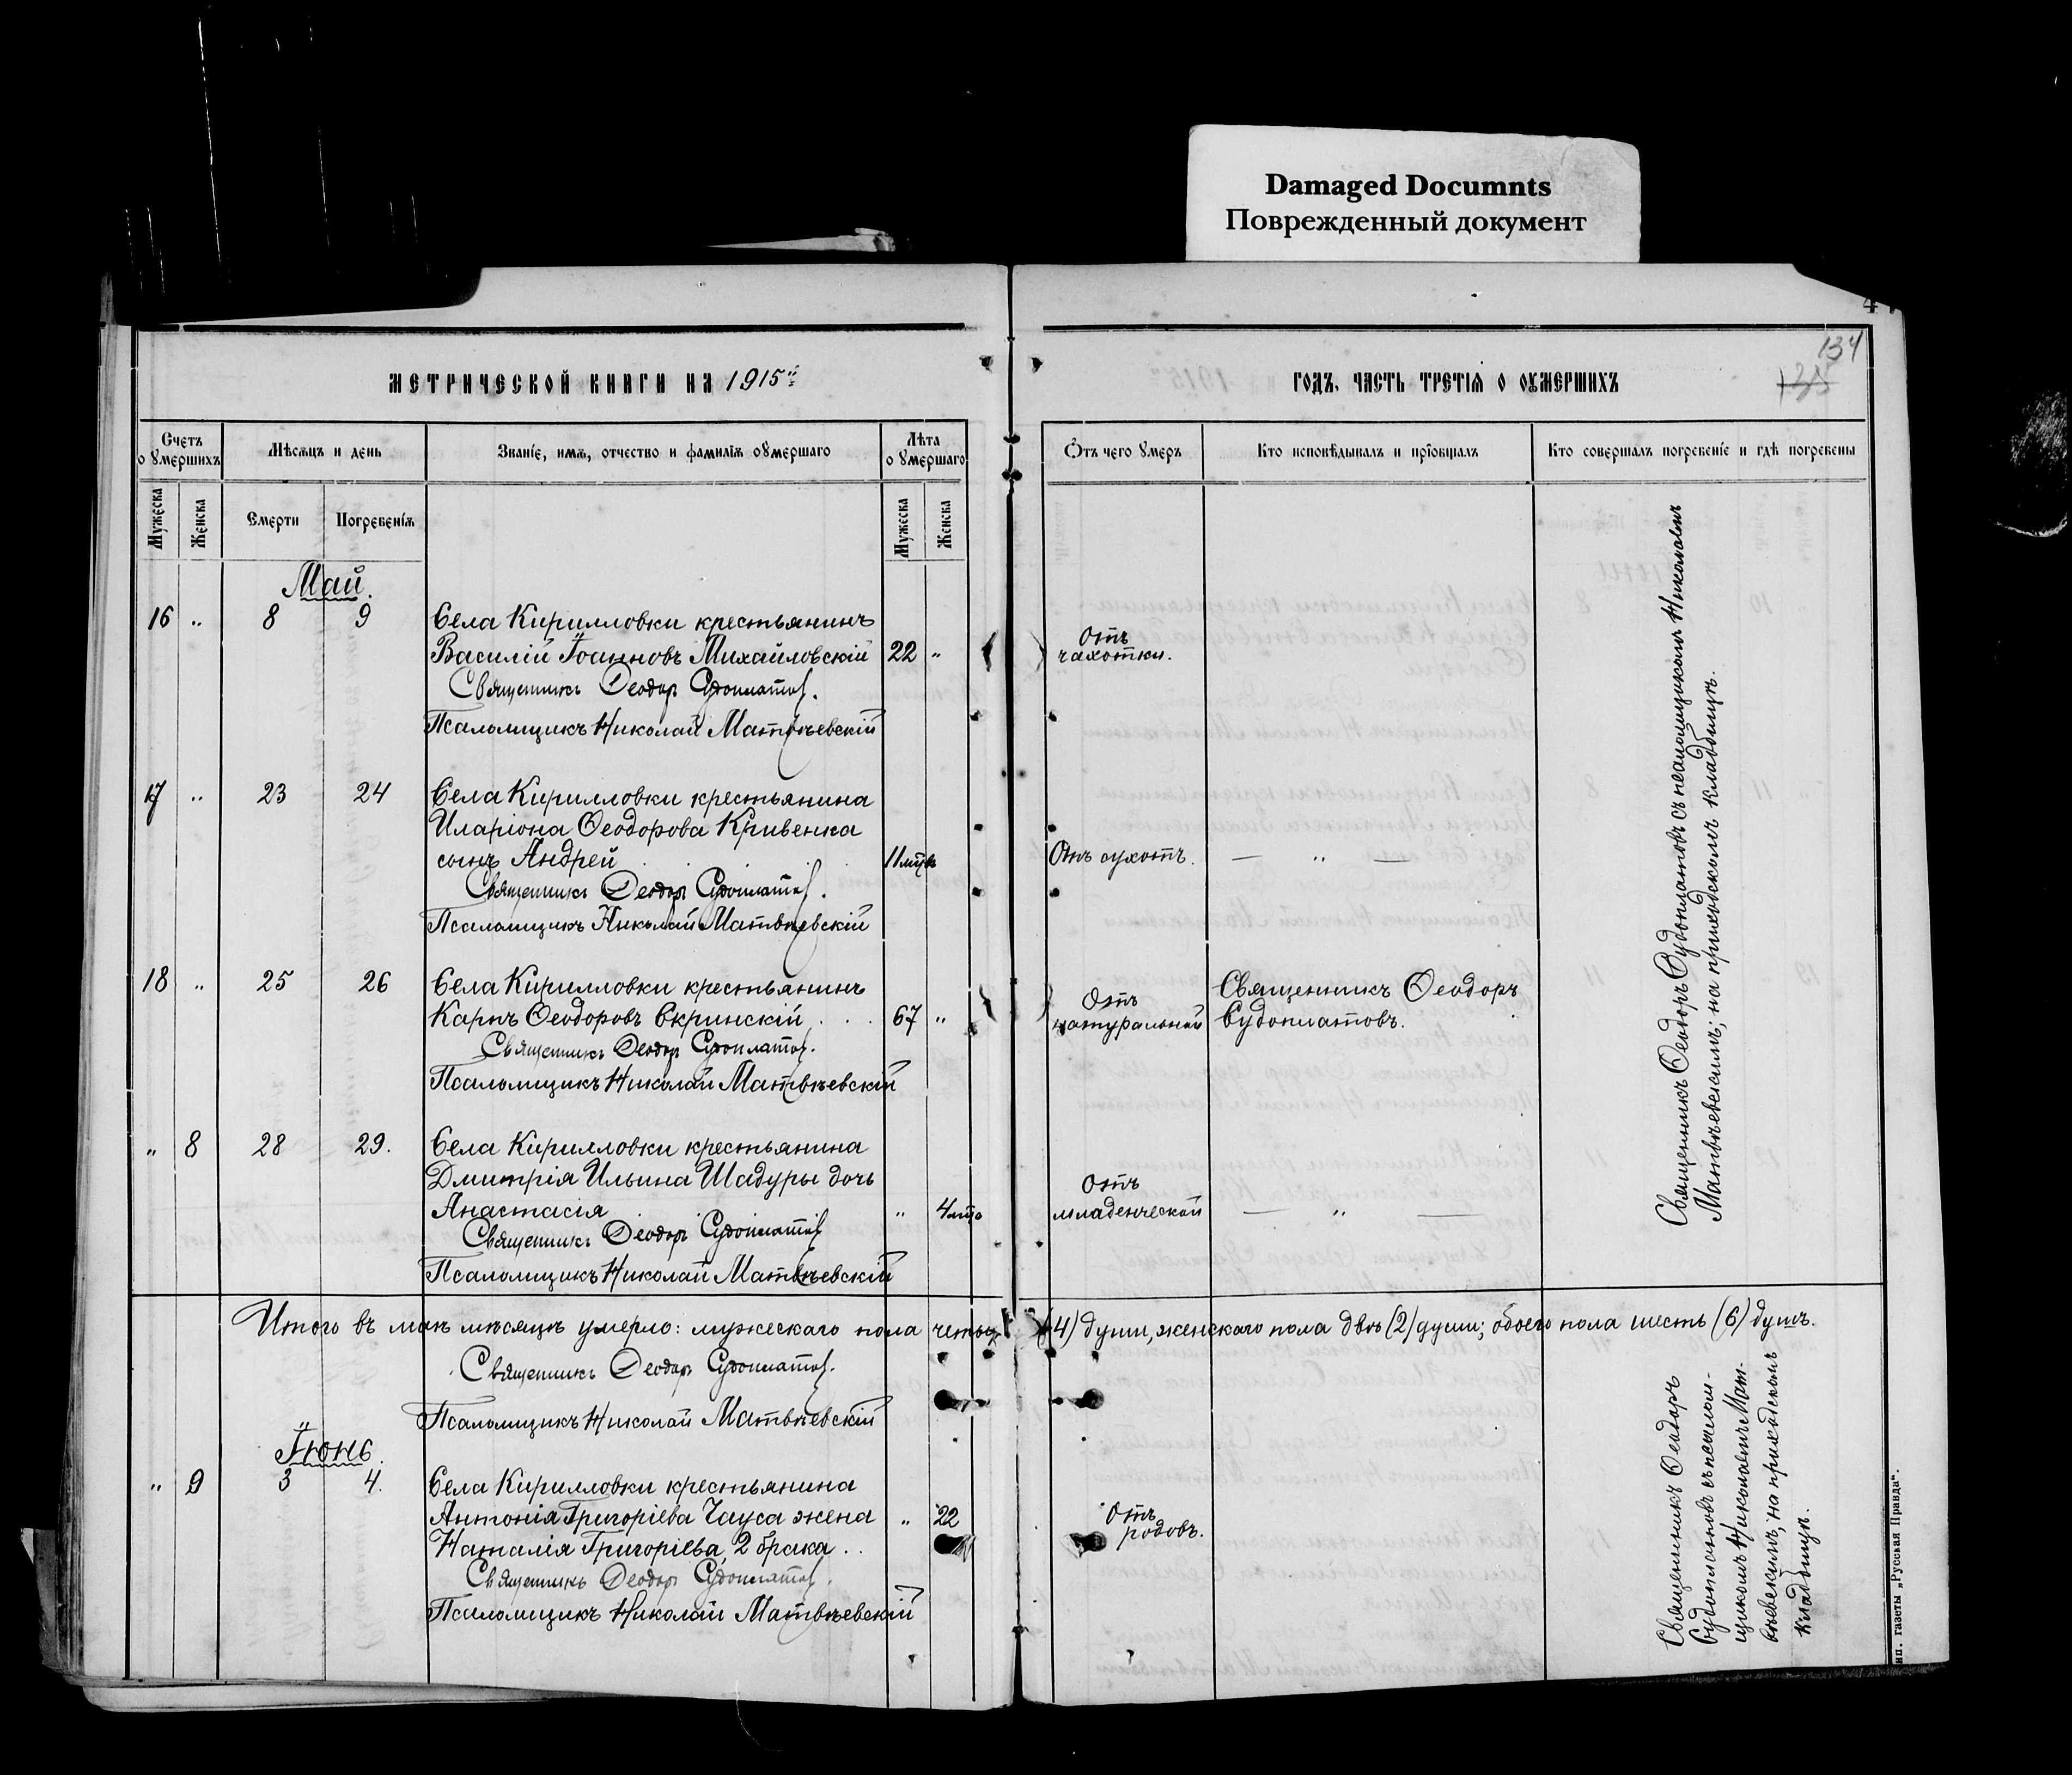 Damaged Documnts
Поврежденный документ
МЕТРИЧЕСКОЙ КНИГИ НА 1915й
ГОДЪ, ЧАСТЬ ТРЕТІѦ О ОУМЕРШИХЪ
134
135
Счетъ о умершихъ
Мѣсѧцъ и день
Званіе, имѧ, отчество и фамиліѧ оумершаго
Лѣта о умершаго
Ѿтъ чего умеръ
Кто исповѣдывалъ и пріобщалъ
Кто совершалъ погребеніе и гдѣ погребены
Мужеска
Женска
Смерти
Погребеніѧ
Мужеска
Женска
Май.
16 " 8 9 Села Кирилловки крестьянинъ
Василій Іоанновъ Михайловскій 22 " Отъ чахотки.
Священникъ Ѳеодоръ Судоплатов.
Псаломщикъ Николай Матвѣевскій
17 " 23 24 Села Кирилловки крестьянина
Иларіона Ѳеодорова Кривенка
сынъ Андрей 11 мѣс Отъ сухотъ. — " —
Священникъ Ѳеодоръ Судоплатов.
Псаломщикъ Николай Матвѣевскій
18 " 25 26 Села Кирилловки крестьянинъ
Карпъ Ѳеодоровъ Скринскій . . . 67 " Отъ натуральной Священникъ Ѳеодоръ Судоплатовъ.
Священникъ Ѳеодоръ Судоплатов.
Псаломщикъ Николай Матвѣевскій
" 8 28 29. Села Кирилловки крестьянина
Дмитрія Ильина Шадуры дочь
Анастасія " 4 Отъ младенческой — " —
Священникъ Ѳеодоръ Судоплатов
Псаломщикъ Николай Матвѣевскій
Священникъ Ѳеодоръ Судоплатовъ съ псаломщикомъ Николаемъ
Матвѣевскимъ; на приходскомъ кладбищѣ.
Итого въ маѣ мѣсяцѣ умерло: мужескаго пола четыр (4) души, женскаго пола двѣ (2) души; обоего пола шесть (6) душъ.
Священникъ Ѳеодоръ Судоплатов.
Псаломщикъ Николай Матвѣевскій
Іюнь.
" 9 3 4. Села Кирилловки крестьянина
Антонія Григоріева Чауса жена " 22 Отъ родовъ.
Наталія Григоріева, 2 брака . .
Священникъ Ѳеодоръ Судоплатов.
Псаломщикъ Николай Матвѣевскій
Священникъ Ѳеодоръ
Судоплатовъ съ псалом-
щикомъ Николаемъ Мат-
вѣевскимъ, на приходскомъ
кладбищѣ.
ип. газеты „Русская Правда".